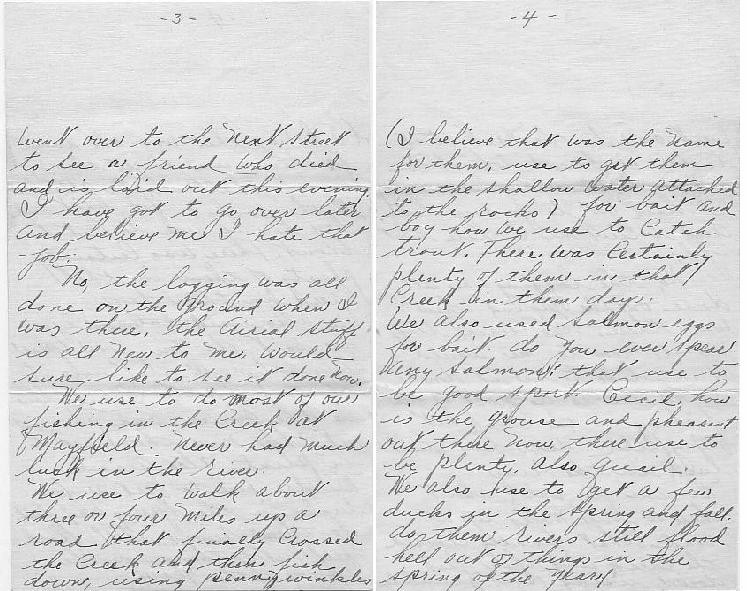 - 3 -
went over to the next street
to see a friend who died
and is laid out this evening.
I have got to go over later
and believe me I hate that
job.
No, the logging was all
done on the ground when I
was there, the aerial stuff
is all new to me, would
sure like to see it done now.
We use to do most of our
fishing in the Creek at
Mayfield. Never had much
luck in the river.
We use to walk about
three or four miles up a
road that finally crossed
the Creek and then fish
down, using pennywinkles
- 4 -
(I believe that was the name
for them, use to get them
in the shallow water attached
to the rocks) for bait and
boy how we use to catch
trout. There was certainly
plenty of them in that
Creek in them days.
We also used salmon eggs
for bait. do you ever spear
any salmon? that use to
be good sport. Cecil how
is the grouse and pheasant
out there now, there use to
be plenty, also quail.
We also use to get a few
ducks in the spring and fall.
do them rivers still flood
hell out of things in the
spring of the year?